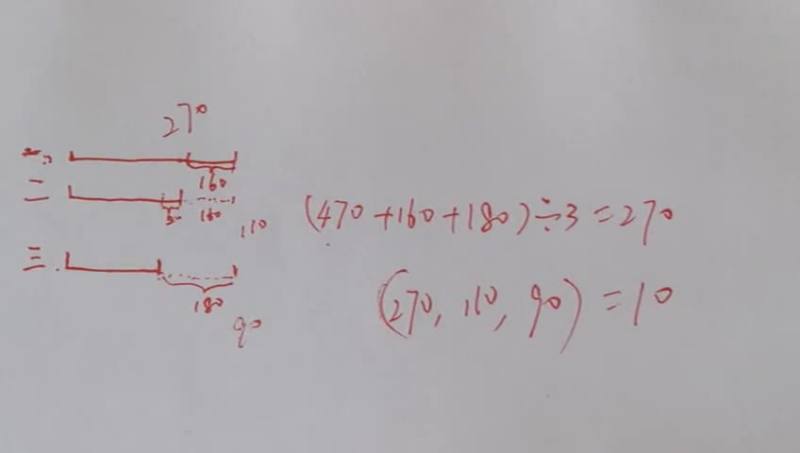 270
一、
160
二
20 160
110
(470+160+180)÷3=270
三.
180
90
(270, 110, 90)=10